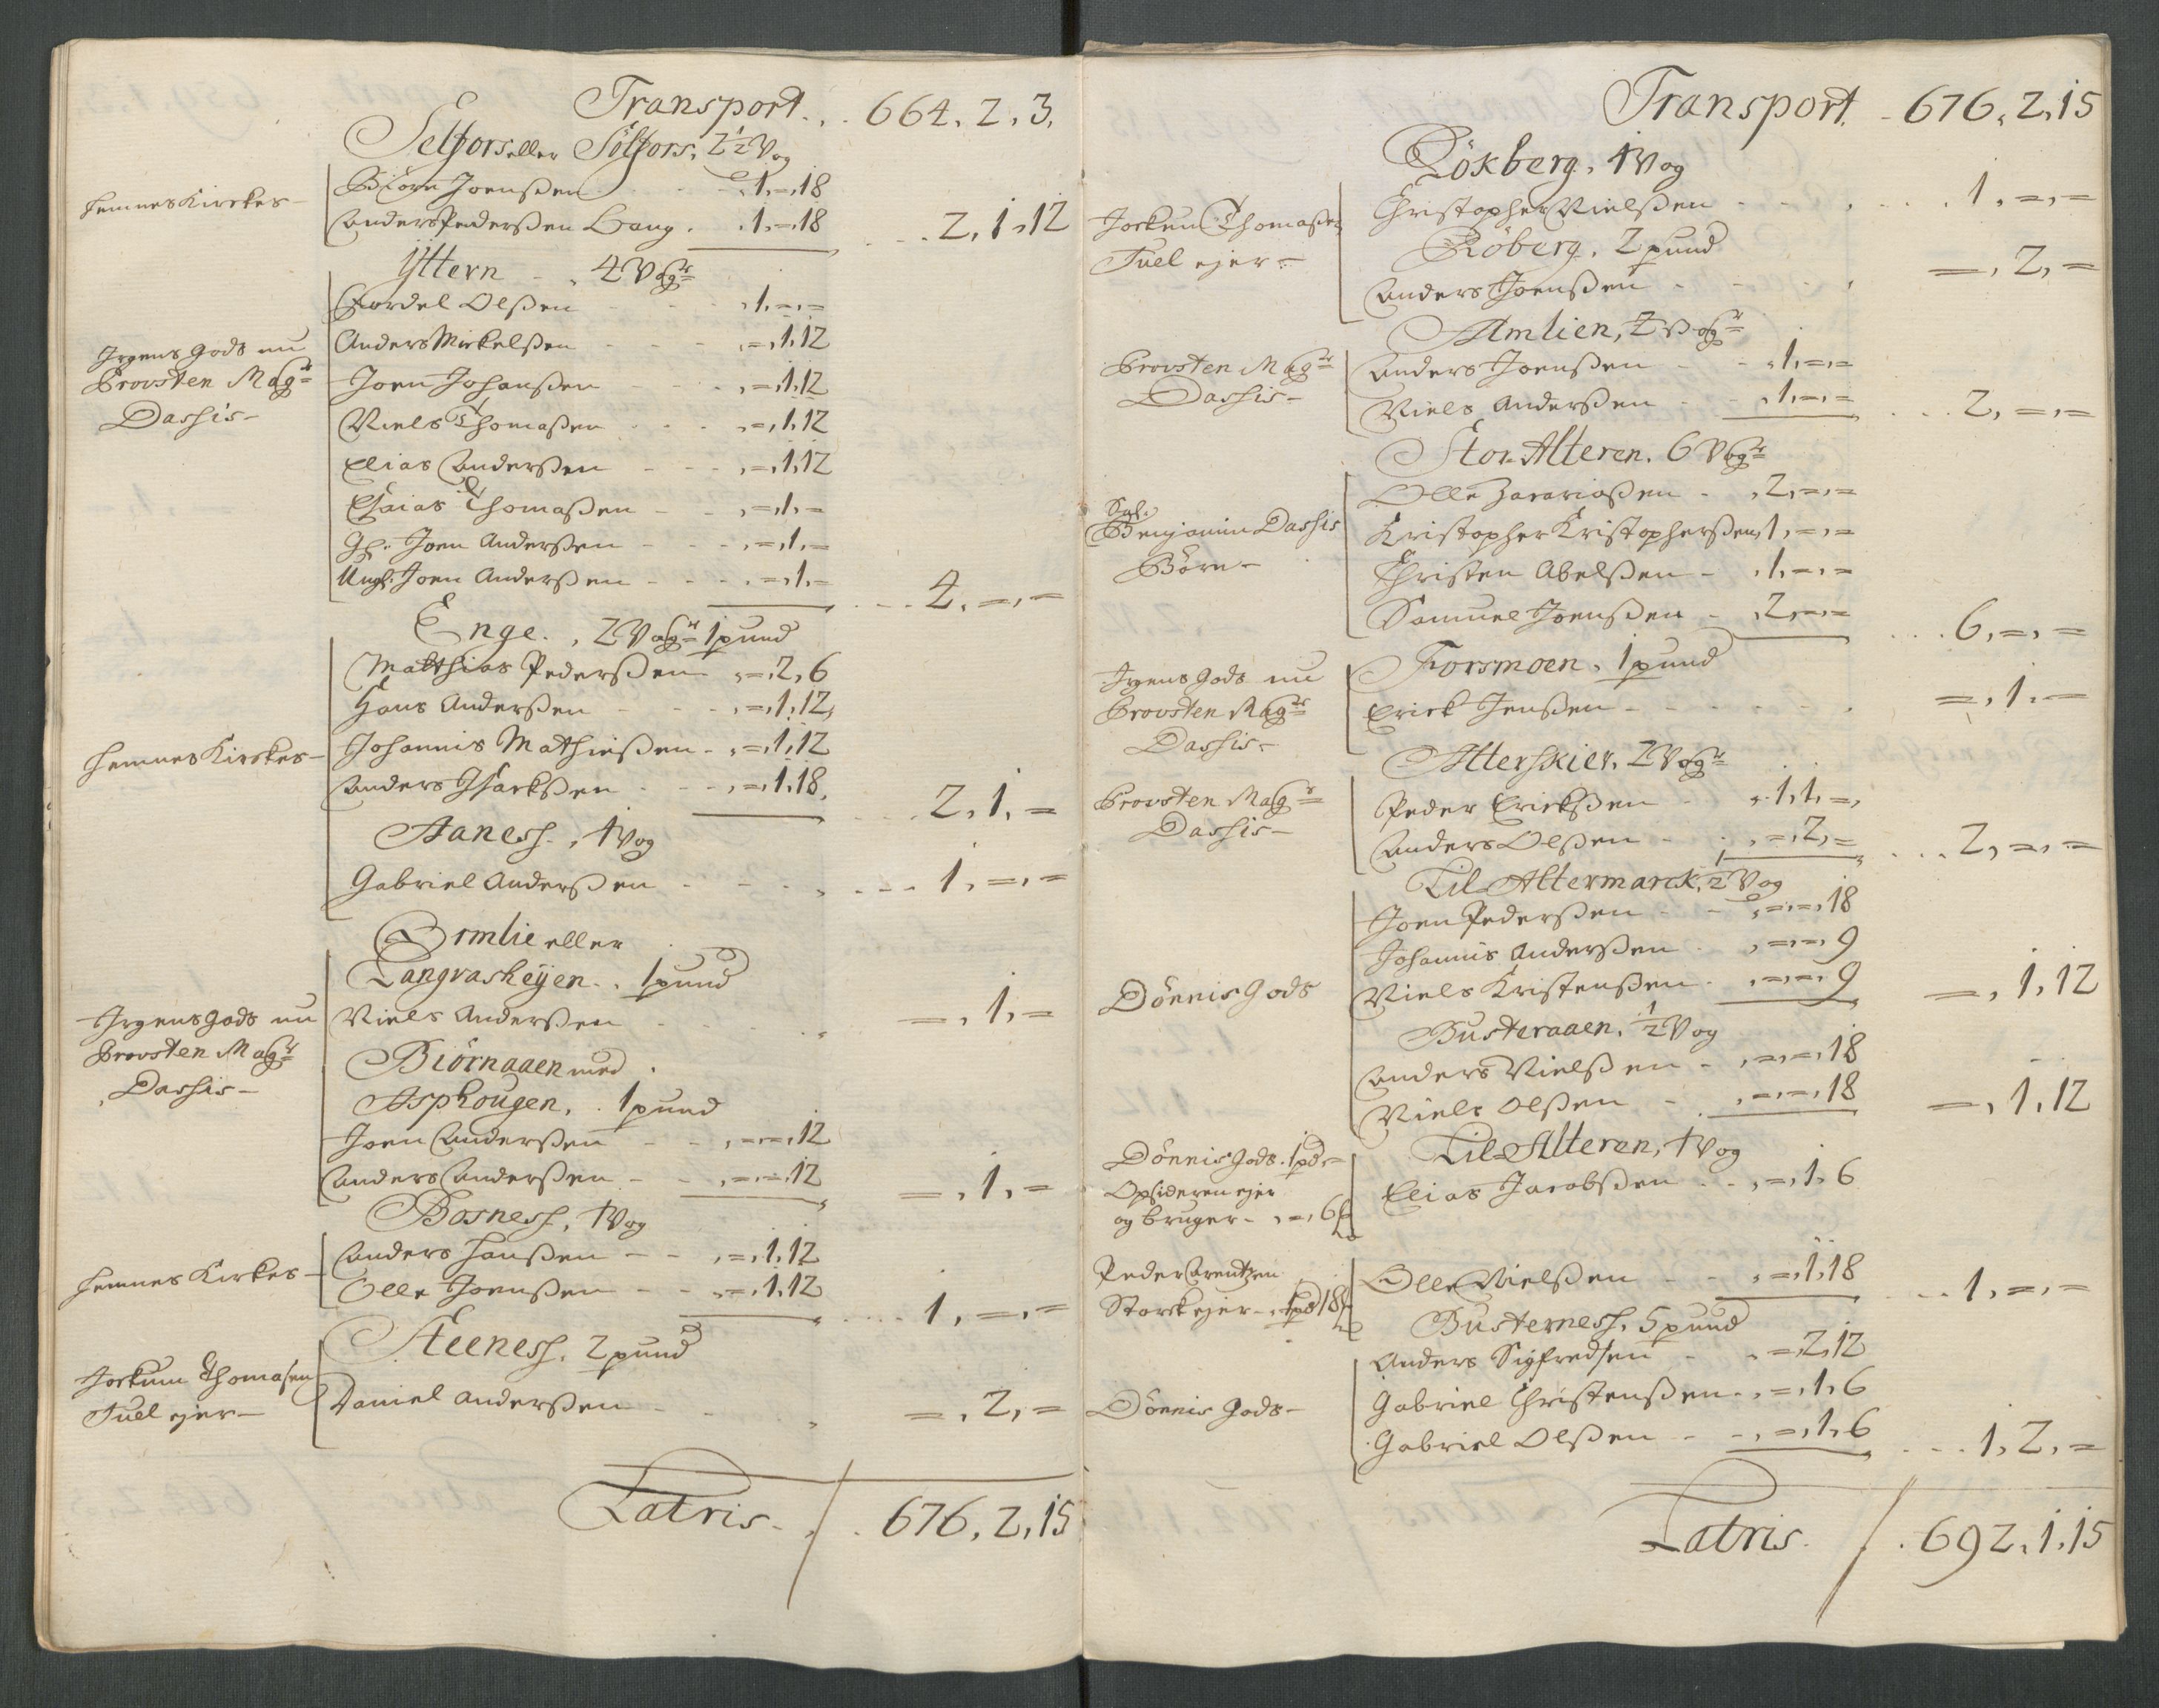 Transport . . . 664. 2. 3.
Selfors eller Sölfors, 2 1/2 Vog
Hemnes Kirckes –
Biörn Joenßen . . . 1. =. 18
Anders Pederßen Bang . . 1. =. 18 . . . 2. 1. 12
Ÿttern – . 4 Vogr
Jrgens Gods nu
Provsten Magr
Dassis –
Fordel Olßen . . . 1. =. =
Anders Mickelßen . . . =. 1. 12
Joen Johanßen . . . =. 1. 12
Niels Thomaßen . . . =. 1. 12
Elias Anderßen . . . =. 1. 12
Esaias Thomaßen . . . =. 1. =
Gl. Joen Anderßen . . . =. 1. =
Ungl. Joen Anderßen . . . =. 1. = . . . 4. =. =
Enge. , 2 Vogr 1 pund
Hemnes Kirckes –
Matthias Pederßen . =. 2. 6
Hans Anderßen . . . =. 1. 12
Johannis Mathiesßen . =. 1. 12
Anders Isackßen . . . =. 1. 18. . . . 2. 1. =
Aaness. , 1 Vog
Gabriel Anderßen . . . 1. =. =
Ormlie eller
Langvasheÿen . . 1 pund
Jrgens Gods nu
Provsten Magr
Dassis –
Niels Anderßen . . . =. 1. =
Biörnaaen med
Asphougen, . 1 pund
Joen Anderßen . . . =. =. 12
Anders Anderßen . . . =. =. 12 . . . =. 1. =
Bosness, 1 Vog
Hemnes Kirkes –
Anders Hanßen . . . =. 1. 12
Olle Joenßen . . . =. 1. 12 . . . 1. =. =
Steeness, 2 pund
Jockum Thomasen
Juel ejer –
Daniel Anderßen . . . =. 2. =
Latris . . 676. 2. 15
Transport . 676. 2. 15
Rökberg, 1 Vog
Jockum Thomaßen
Juel ejer –
Christopher Nielßen . . . 1. =. =
Röberg, 2 pund
Anders Joenßen . . . =. 2. =
Almlien, 2 Vogr
Provsten Magr
Dassis –
Anders Joenßen . . . 1. =. =
Niels Anderßen . . . 1. =. = . . . 2. =. =
Stor Alteren. 6 Vogr
Sal.
Benjamin Dassis
Börn –
Olle Zacariaßen . . 2. =. =
Kristopher Kristopherßen, 1. =. =
Christen Abelßen – . 1. =. =
Samuel Joenßen . . 2. =. = . . . 6. =. =
Forsmoen, 1 pund
Jrgens Gods nu
Provsten Magr
Dassis –
Erick Jenßen . . . =. 1. =
Alterskier, 2 Vogr
Provsten Magr
Dassis –
Peder Erickßen . . 1. 1. =.
Anders Olßen . . . =. 2. = . . . 2. =. =
Lil Altermarck, 1/2 Vog
Dönnis Gods
Joen Pederßen . . . =. =. 18
Johannis Anderßen . . =. =. 9
Niels Kristenßen . . =. =. 9 =. 1. 12
Busteraaen, 1/2 Vog
Anders Nielßen . . =. =. 18
Niels Olßen . . =. =. 18 =. 1. 12
Lil Alteren, 1 Vog
Dönnis Gods . 1 pd –
Opsideren ejer
og bruger – . =. 6
Elias Jacobßen . . =. 1. 6
Peder Arentzen
Storck ejer – . 1 pd 18
Olle Nielßen . . . =. 1. 18 . . . 1. =. =
Busterness, 5 pund
Dönnis Gods –
Anders Sigfredsen . . =. 2. 12
Gabriel Christenßen . . =. 1. 6
Gabriel Olßen . . =. 1. 6 . . . 1. 2. =
Latris . . 692. 1. 15